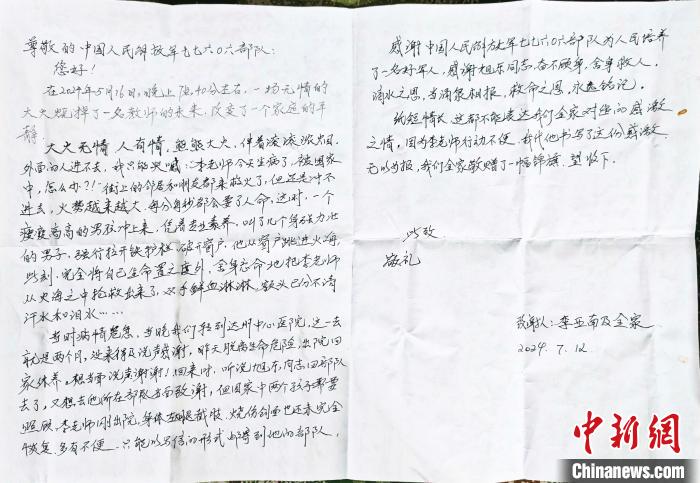 尊敬的中国人民解放军七七六〇六部队：
您好！
在2024年5月16日，晚上 40分左右，一场无情的
大火 掉了一名教师的未来，改变了一个家庭的平
静。
大火无情 人有情，熊熊大火，伴着滚滚浓烟，
外面的人进不去，我只能哭喊：李老师今天生病了，该困家
中，怎么办？！街上的邻居和朋友都来救火了，但还是冲不
进去，火势越来越大，每分每秒都会要了人命，这时，一个
瘦瘦高高的男孩冲上来，凭着专业素养，叫了几个身强力壮
的男子，强行拉开铁护栏，破开窗户，他从窗户跳进火海，
此刻，完全将自己生命置之度外，舍身忘命地把李老师
从火海之中抢救出来了，双手鲜血淋淋，额头已分不清
汗水和泪水……
当时病情危急，当晚我们转到达州中心医院，这一去
就是两个月，没来得及说声感谢，昨天脱离生命危险，出院回
家休养。想当面说声谢谢！回来时，听说旭东同志回部队
去了，又想去他所在部队当面致谢，但因家中两个孩子都要
照顾，李老师刚出院，身体 截肢，烧伤创面也还未完全
恢复，多有不便。只能以写信的形式邮寄到他的部队，
感谢中国人民解放军七七六〇六部队为人民培养
了一名好军人，感谢旭东同志，奋不顾身，舍身救人。
滴水之恩，当涌泉相报，救命之恩，永远铭记。
纸短情长，这都不能表达我们全家对您的感激
之情，因为李老师行动不便，我代他书写了这份感激，
无以为报，我们全家敬赠了一幅锦旗，望收下。
此致
敬礼
致谢人：李亚南及全家
2024.7.12
中新网
Chinanews.com